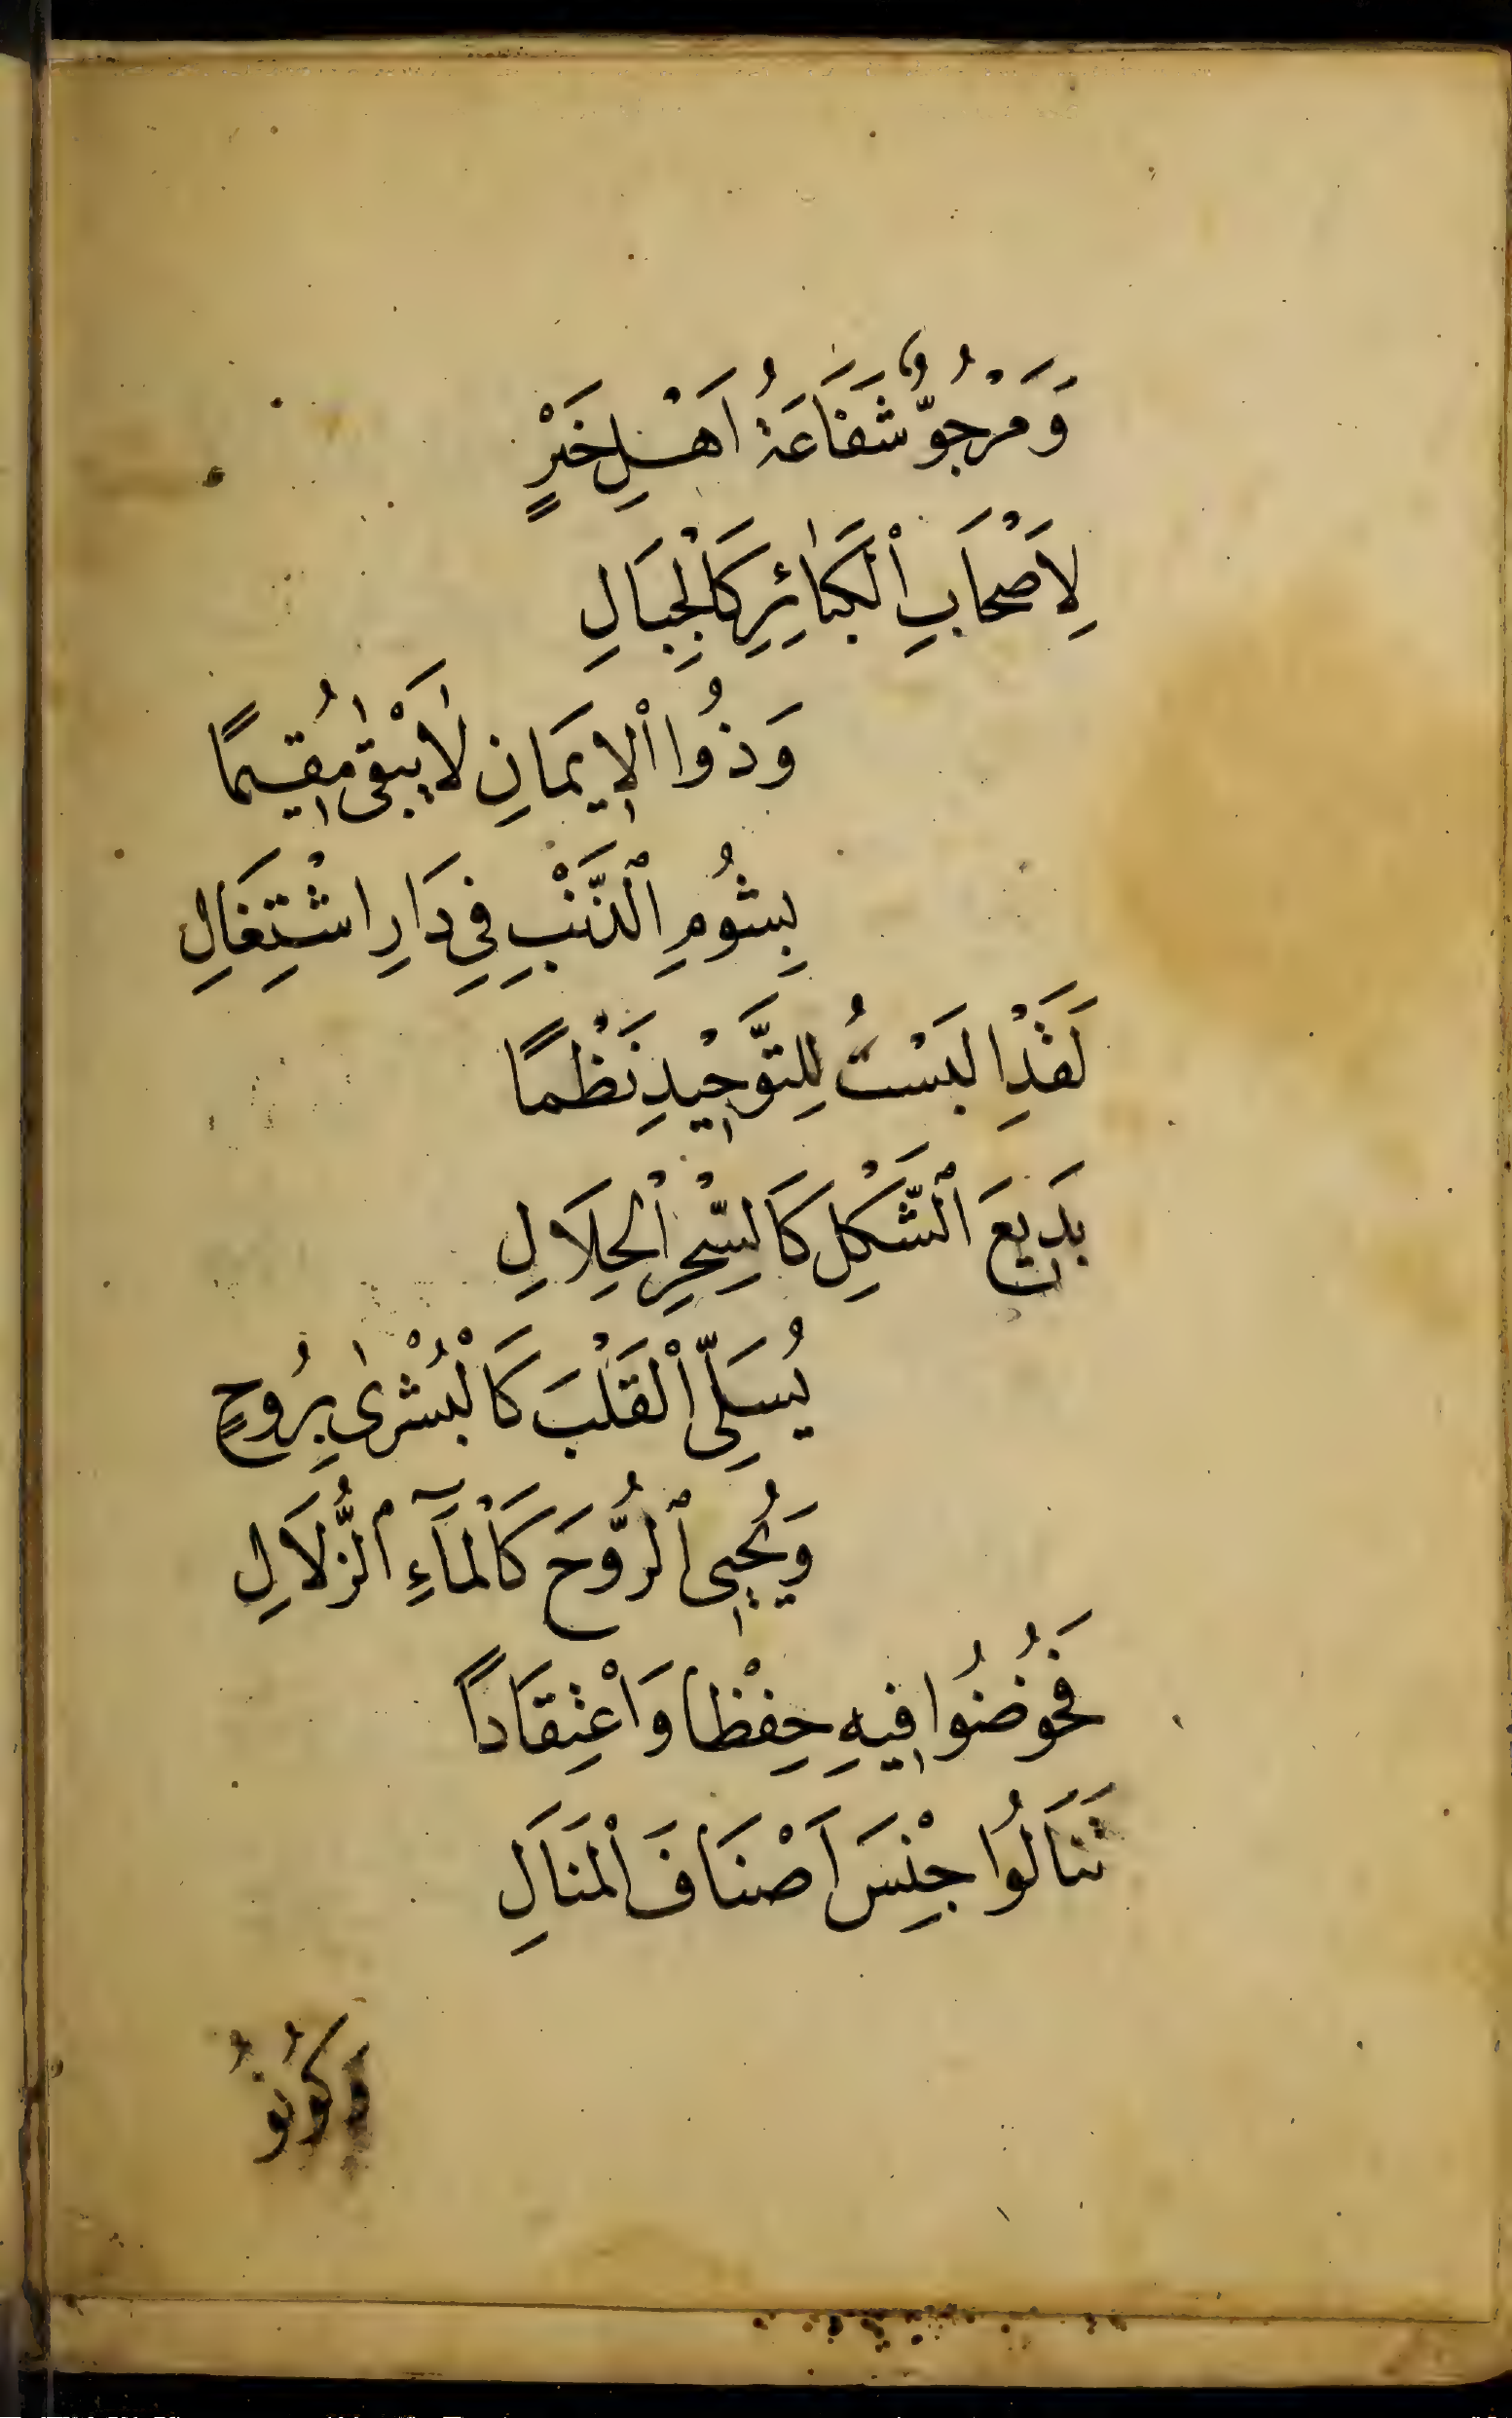 وَمَرْجُوٌّ شَفَاعَةُ اَهْلِ خَيْرٍ
لِاَصْحَابِ الْكَبَائِرِ كَالْجِبَالِ
وَذُوا الْاِيمَانِ لَايَبْقٰى مُقِيمًا
بِشُومِ الْذَّنْبِ فِي دَارِ اشْتِغَالِ
لَقَدْ اِلبَسْتُ لِلتَّوَحْيدِ نَظْمًا
بَدِيعَ الْشَّكْلِ كَالسِّحْرِ الْحِلَالِ
يُسَلِّى الْقَلْبَ كَالْبُشْرٰى بِرُوحٍ
وَيُحْيِى الْرُّوحَ كَالْمَآءِ الزُّلَالِ
فَخُوضُوا فِيهِ حِفْظًا وَاعْتِقَادًا
تَنَالُوا جِنْسَ اَصْنَافَ الْمَنَالِ
وَكُونُوُ